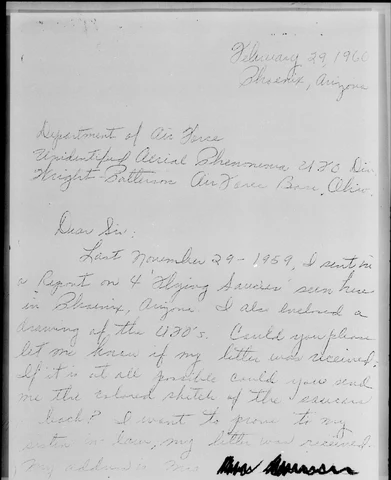 February 29, 1960
Phoenix, Arizona
Department of Air Force
Unidentified Aerial Phenomena UFO Div.
Wright-Patterson Air Force Base, Ohio.
Dear Sir:
Last November 29-1959, I sent in
a Report on 4 "Flying Saucers" seen here
in Phoenix, Arizona. I also enclosed a
drawing of the U.F.O's. Could you please
let me know if my letter was received.
If it is at all possible could you send
me the colored sketch of the saucers
back? I want to prove to my
sister in law, my letter was received.
My address is Mrs